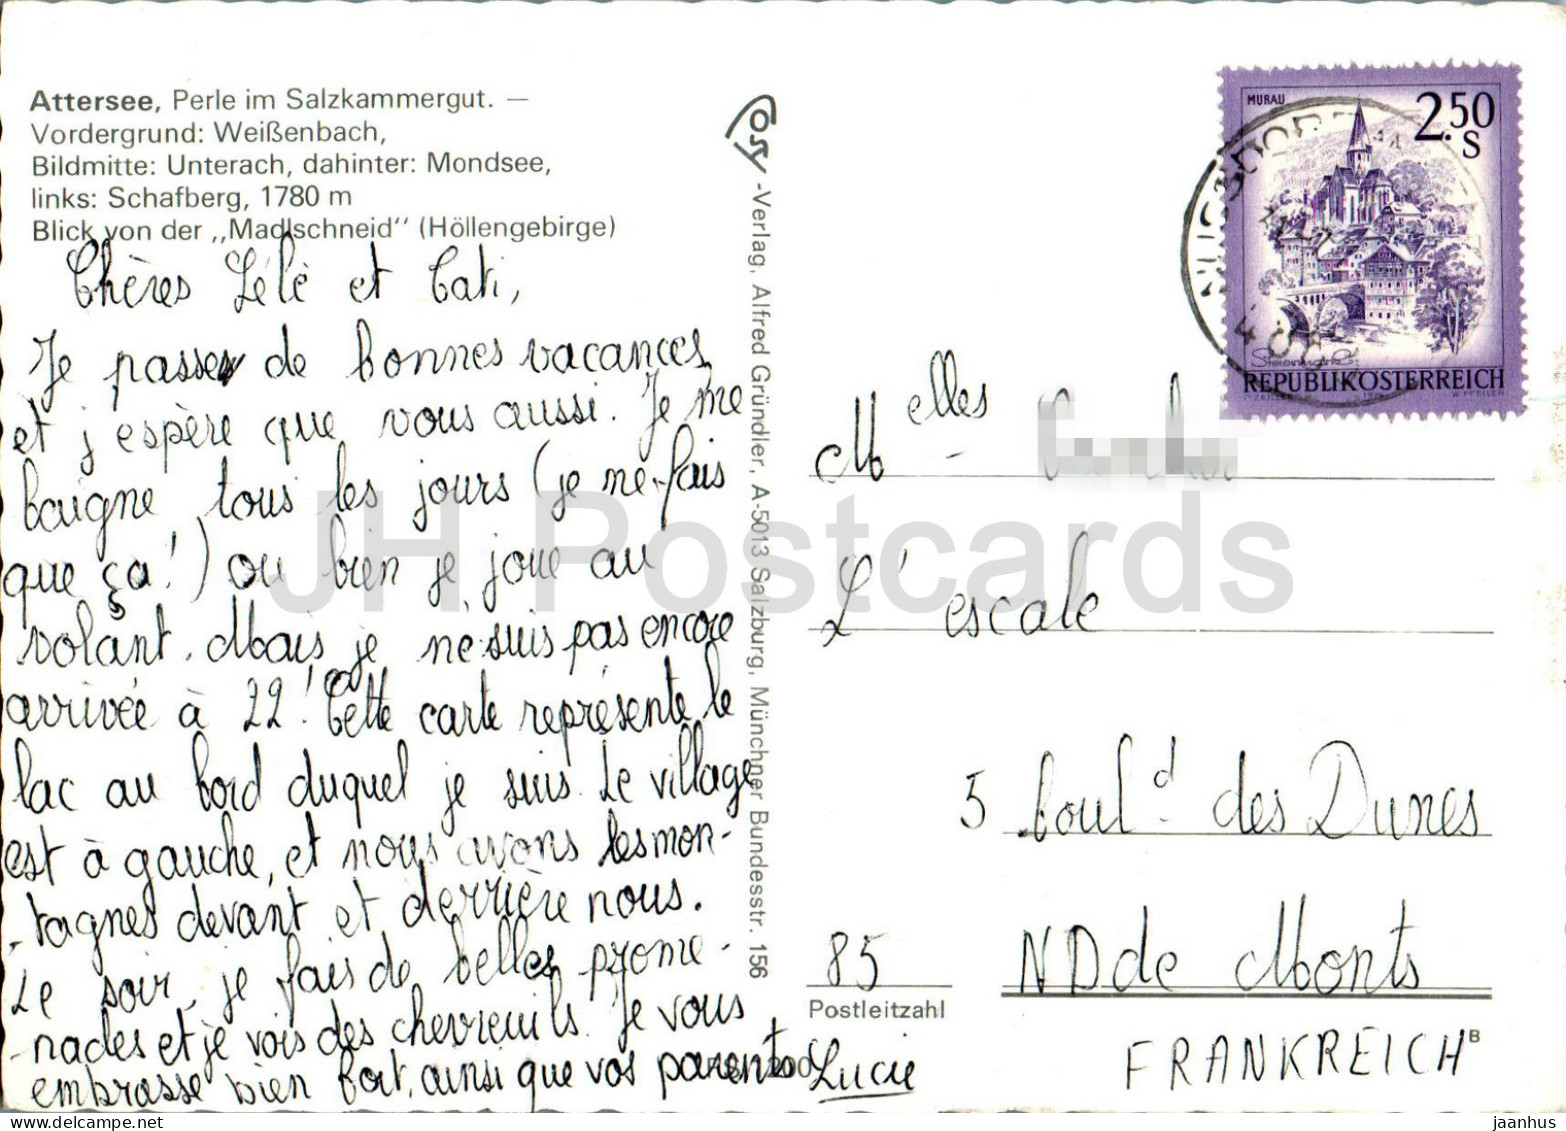 Attersee, Perle im Salzkammergut. —
Vordergrund: Weißenbach,
Bildmitte: Unterach, dahinter: Mondsee,
links: Schafberg, 1780 m
Blick von der „Madlschneid" (Höllengebirge)
Chères Lélé et Cati,
Je passe de bonnes vacances
et j'espère que vous aussi. Je me
baigne tous les jours (je ne fais
que ça!) ou bien je joue au
volant. Mais je ne suis pas encore
arrivée à 22! Cette carte représente le
lac au bord duquel je suis. Le village
est à gauche, et nous avons les mon-
-tagnes devant et derrière nous.
Le soir, je fais de belles prome-
-nades et je vois des chevreuils. Je vous
embrasse bien fort, ainsi que vos parents
Lucie
Ösy-Verlag, Alfred Gründler, A-5013 Salzburg, Münchner Bundesstr. 156
MURAU
2.50
S
Steiermark
REPUBLIK ÖSTERREICH
NUSSDORF
Melles
L'escale
5 boul.d des Dunes
85 ND de Monts
Postleitzahl
FRANKREICH
B
JH Postcards
jaanhus